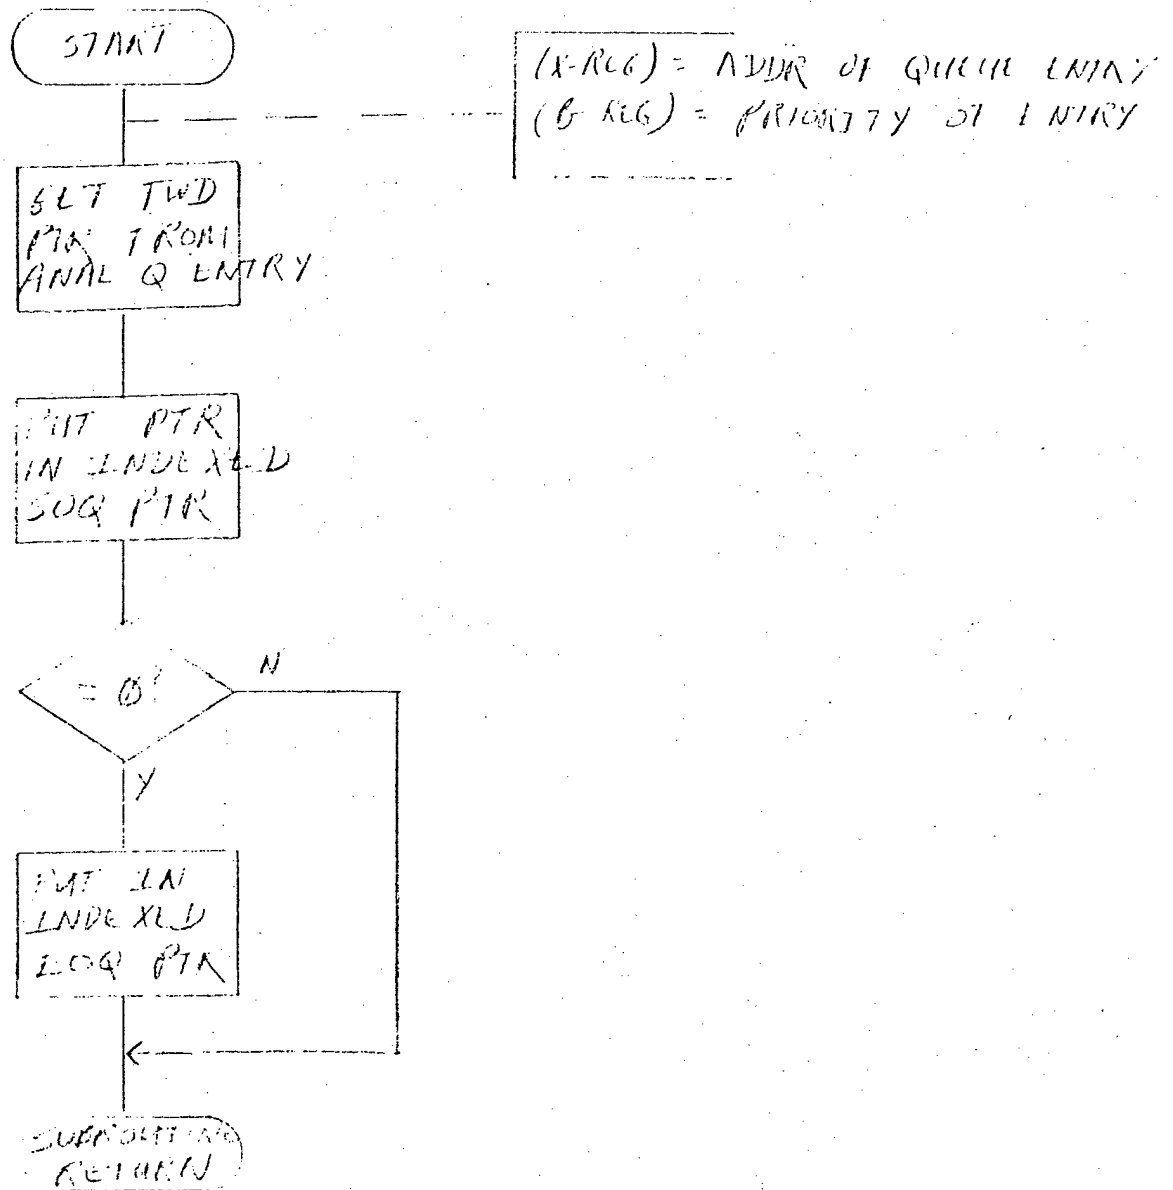 START
(X-REG) = ADDR OF QUEUE ENTRY
(B-REG) = PRIORITY OF ENTRY
GET FWD
PTR FROM
ANAL Q ENTRY
PUT PTR
IN INDEXED
SOQ PTR
= Ø?
N
Y
PUT IN
INDEXED
EOQ PTR
SUBROUTINE
RETURN